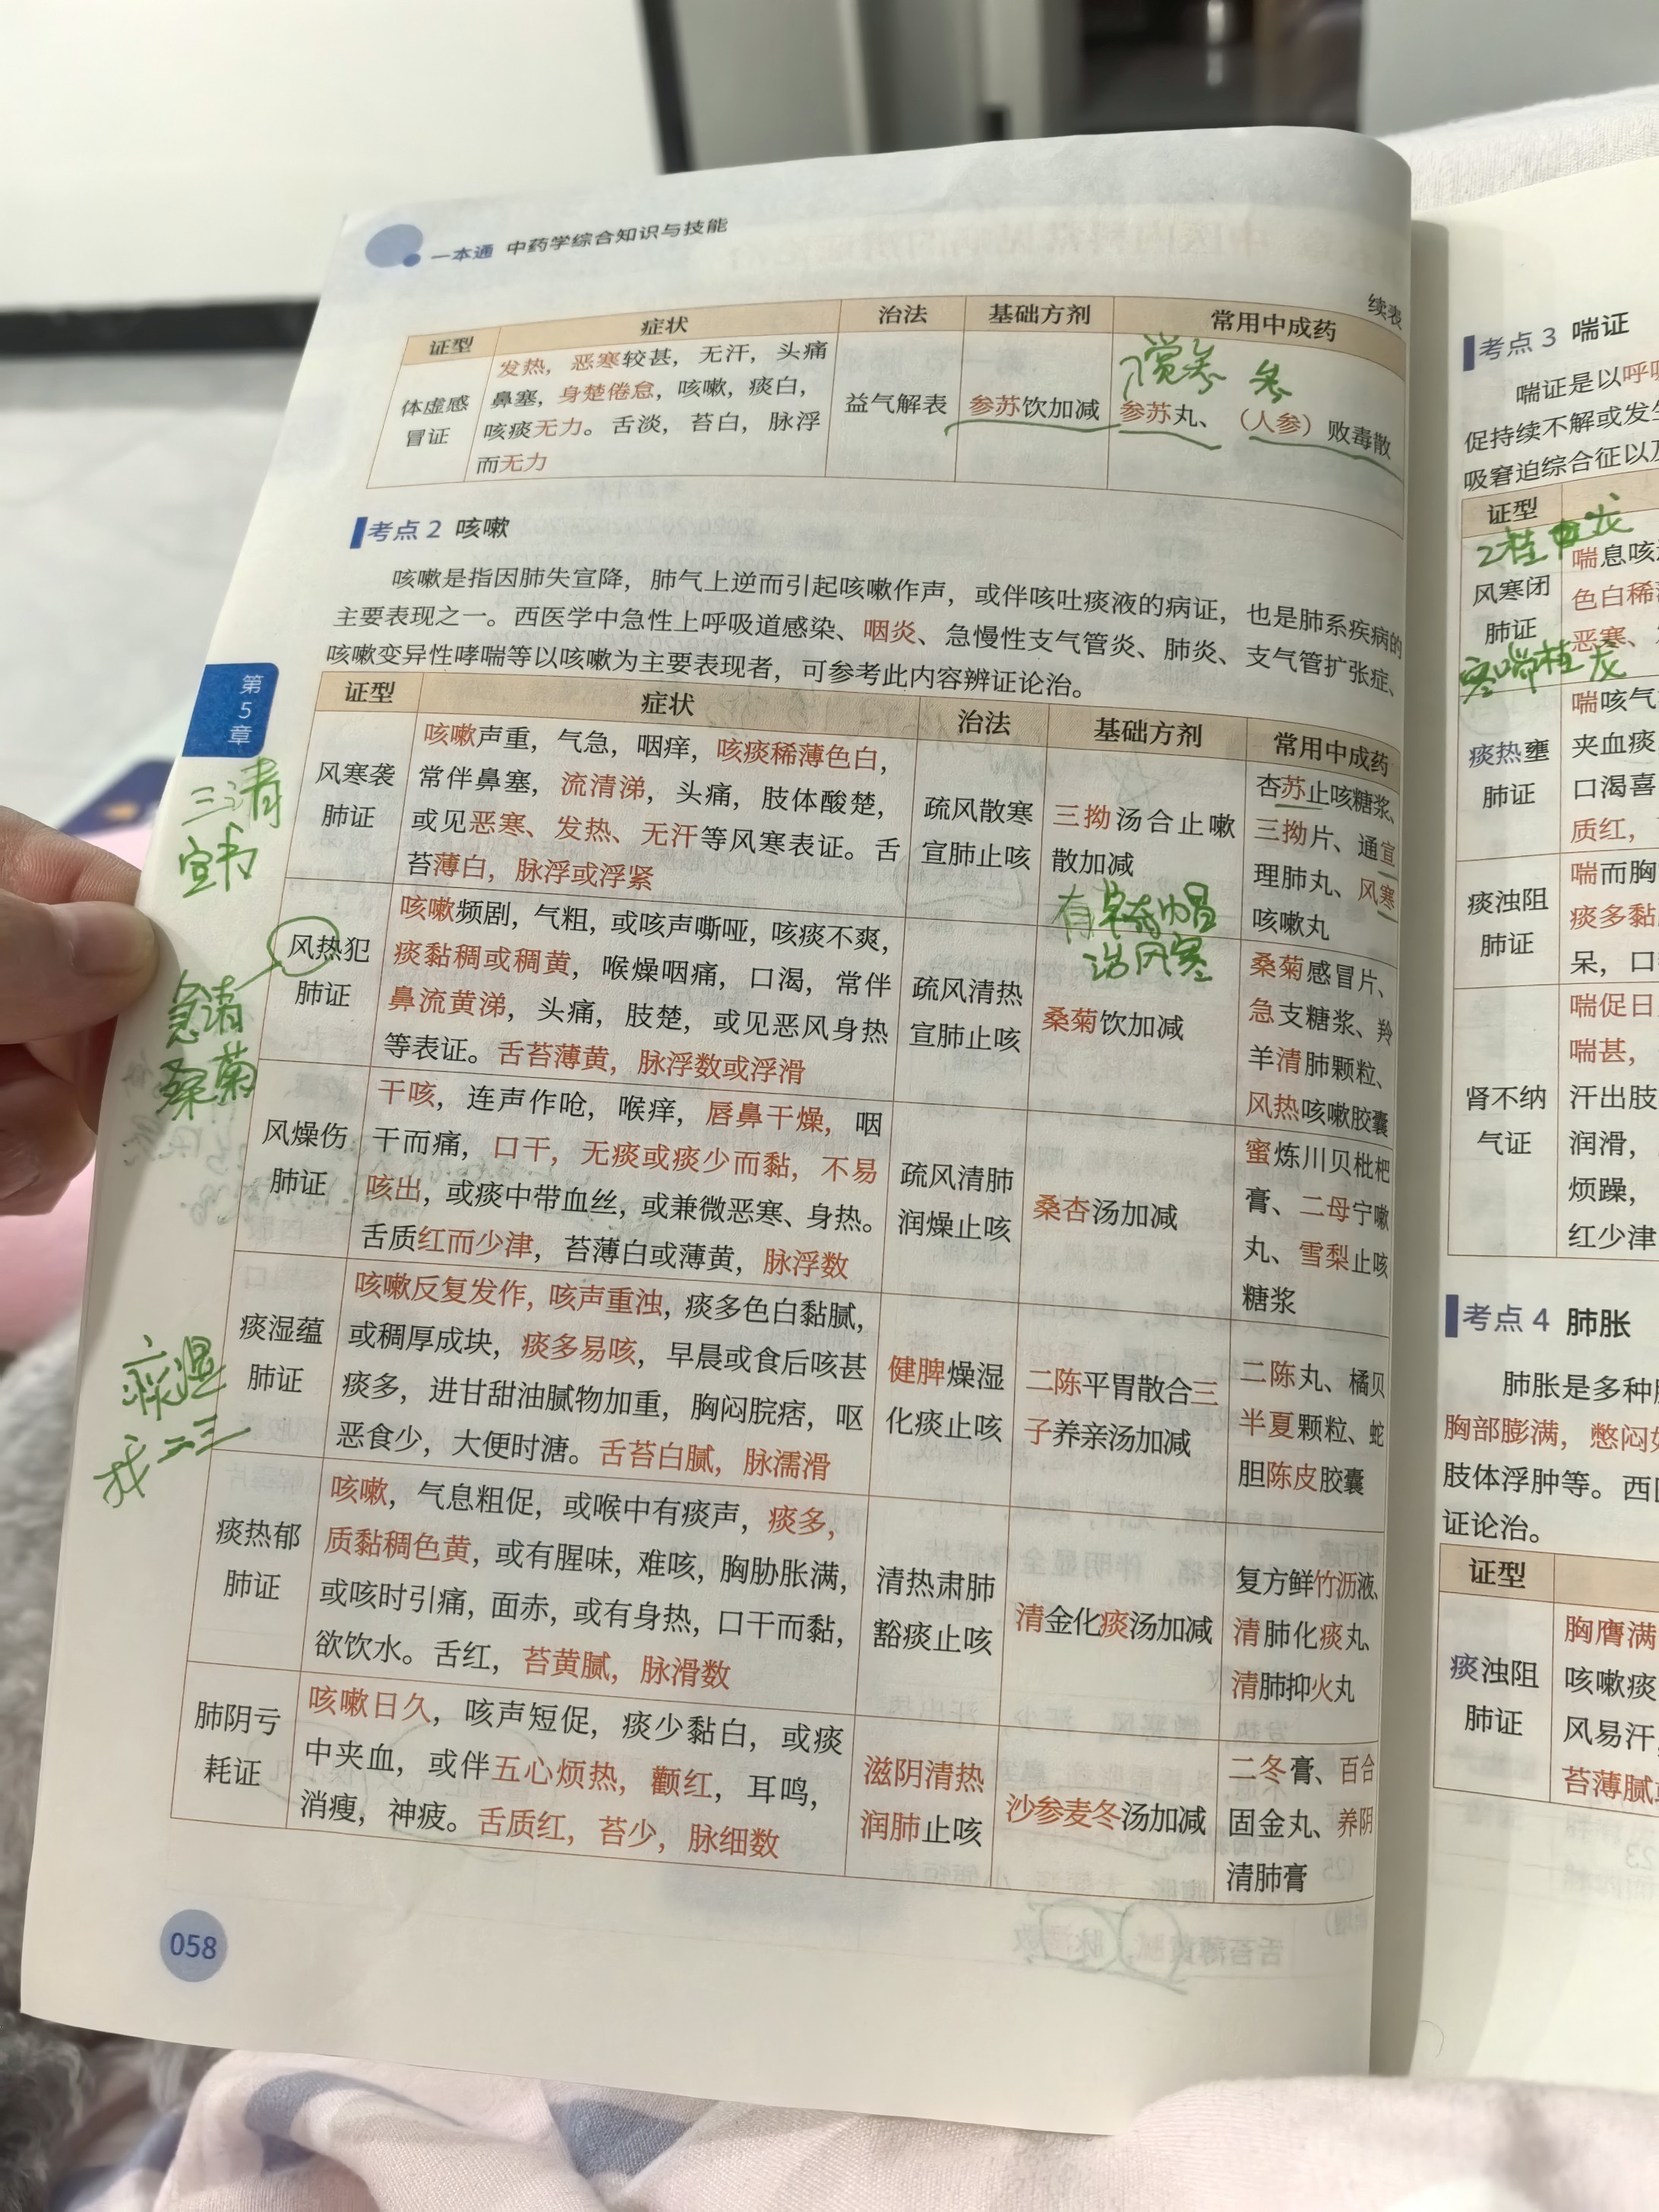 一本通 中药学综合知识与技能
续表
证型 症状 治法 基础方剂 常用中成药
体虚感
冒证
发热，恶寒较甚，无汗，头痛
鼻塞，身楚倦怠，咳嗽，痰白，
咳痰无力。舌淡，苔白，脉浮
而无力
益气解表
参苏饮加减
参
参苏丸、（人参）败毒散
考点 2 咳嗽
咳嗽是指因肺失宣降，肺气上逆而引起咳嗽作声，或伴咳吐痰液的病证，也是肺系疾病的
主要表现之一。西医学中急性上呼吸道感染、咽炎、急慢性支气管炎、肺炎、支气管扩张症、
咳嗽变异性哮喘等以咳嗽为主要表现者，可参考此内容辨证论治。
第
5
章
证型 症状 治法 基础方剂 常用中成药
风寒袭
肺证
咳嗽声重，气急，咽痒，咳痰稀薄色白，
常伴鼻塞，流清涕，头痛，肢体酸楚，
或见恶寒、发热、无汗等风寒表证。舌
苔薄白，脉浮或浮紧
疏风散寒
宣肺止咳
三拗汤合止嗽
散加减
杏苏止咳糖浆、
三拗片、通宣
理肺丸、风寒
咳嗽丸
风热犯
肺证
咳嗽频剧，气粗，或咳声嘶哑，咳痰不爽，
痰黏稠或稠黄，喉燥咽痛，口渴，常伴
鼻流黄涕，头痛，肢楚，或见恶风身热
等表证。舌苔薄黄，脉浮数或浮滑
疏风清热
宣肺止咳
桑菊饮加减
桑菊感冒片、
急支糖浆、羚
羊清肺颗粒、
风热咳嗽胶囊
急清
桑菊
风燥伤
肺证
干咳，连声作呛，喉痒，唇鼻干燥，咽
干而痛，口干，无痰或痰少而黏，不易
咳出，或痰中带血丝，或兼微恶寒、身热。
舌质红而少津，苔薄白或薄黄，脉浮数
疏风清肺
润燥止咳
桑杏汤加减
蜜炼川贝枇杷
膏、二母宁嗽
丸、雪梨止咳
糖浆
痰湿蕴
肺证
咳嗽反复发作，咳声重浊，痰多色白黏腻，
或稠厚成块，痰多易咳，早晨或食后咳甚
痰多，进甘甜油腻物加重，胸闷脘痞，呕
恶食少，大便时溏。舌苔白腻，脉濡滑
健脾燥湿
化痰止咳
二陈平胃散合三
子养亲汤加减
二陈丸、橘贝
半夏颗粒、蛇
胆陈皮胶囊
痰湿
找二三
痰热郁
肺证
咳嗽，气息粗促，或喉中有痰声，痰多，
质黏稠色黄，或有腥味，难咳，胸胁胀满，
或咳时引痛，面赤，或有身热，口干而黏，
欲饮水。舌红，苔黄腻，脉滑数
清热肃肺
豁痰止咳
清金化痰汤加减
复方鲜竹沥液、
清肺化痰丸、
清肺抑火丸
肺阴亏
耗证
咳嗽日久，咳声短促，痰少黏白，或痰
中夹血，或伴五心烦热，颧红，耳鸣，
消瘦，神疲。舌质红，苔少，脉细数
滋阴清热
润肺止咳
沙参麦冬汤加减
二冬膏、百合
固金丸、养阴
清肺膏
058
考点 3 喘证
喘证是以呼吸
促持续不解或发生
吸窘迫综合征以及
证型
风寒闭
肺证
喘息咳
色白稀
恶寒、
寒喘桂龙
痰热壅
肺证
喘咳气
夹血痰
口渴喜
质红，
痰浊阻
肺证
喘而胸
痰多黏
呆，口
肾不纳
气证
喘促日
喘甚，
汗出肢
润滑，
烦躁，
红少津
考点 4 肺胀
肺胀是多种
胸部膨满，憋闷如
肢体浮肿等。西医
证论治。
证型
痰浊阻
肺证
胸膺满
咳嗽痰
风易汗，
苔薄腻